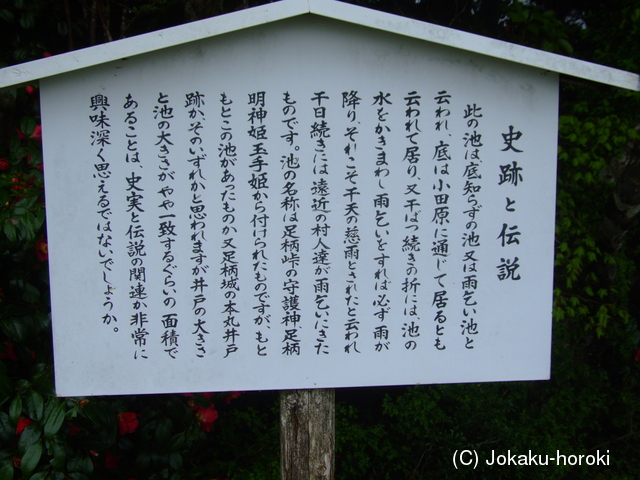 史跡と伝説
此の池は、底知らずの池又は雨乞い池と
云われ、底は小田原に通じて居るとも
云われて居り、又干ばつ続きの折には、池の
水をかきまわし雨乞いをすれば必ず雨が
降り、それこそ干天の慈雨とされたと云われ
干日続きには遠近の村人達が雨乞いにきた
ものです。池の名称は足柄峠の守護神足柄
明神姫玉手姫から付けられたものですが、もと
もとこの池があったものか又足柄城の本丸井戸
跡か、そのいずれかと思われますが井戸の大きさ
と池の大きさがやや一致するぐらいの面積で
あることは、史実と伝説の関連が非常に
興味深く思えるではないでしょうか。
(C) Jokaku-horoki